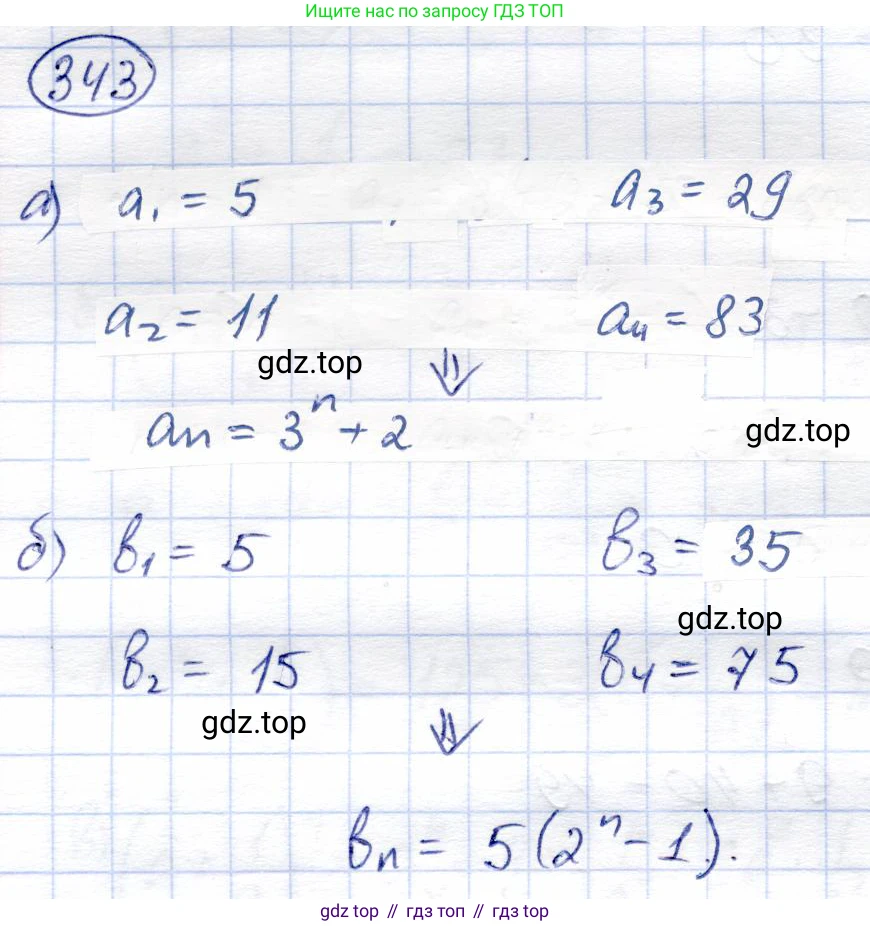 Ищите нас по запросу ГДЗ ТОП
343
а) a₁ = 5 a₃ = 29
a₂ = 11 a₄ = 83
gdz.top
⇓
aₙ = 3ⁿ + 2
gdz.top
б) b₁ = 5 b₃ = 35
gdz.top
b₂ = 15 b₄ = 75
gdz.top
⇓
bₙ = 5(2ⁿ - 1).
gdz top // гдз топ // gdz top